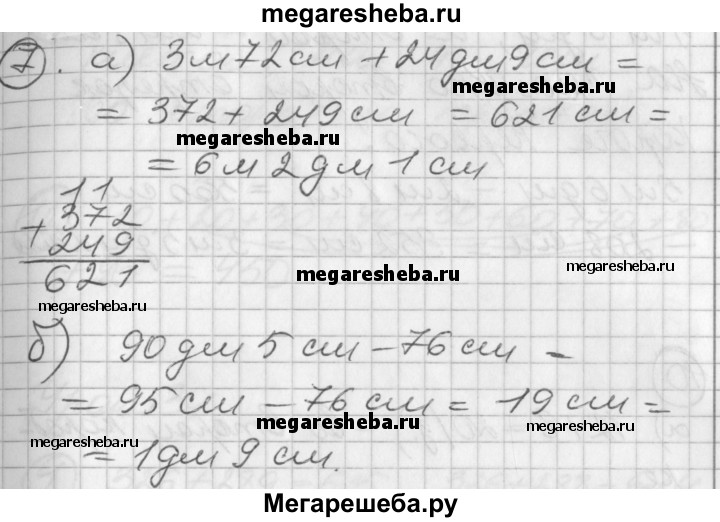 megaresheba.ru
7. а) 3 м 72 см + 24 дм 9 см =
megaresheba.ru
= 372 + 249 см = 621 см =
megaresheba.ru
= 6 м 2 дм 1 см
11
+ 372
249
621
megaresheba.ru
megaresheba.ru
megaresheba.ru
б) 90 дм 5 см - 76 см -
= 95 см - 76 см = 19 см =
megaresheba.ru
megaresheba.ru
megaresheba.ru
= 1 дм 9 см.
Мегарешеба.ру